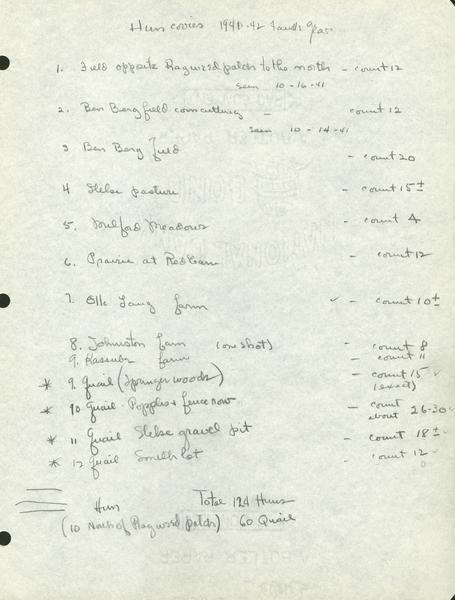 Hun covies 1941-42 Faville Grove
1. Field opposite Ragweed patch to the north - count 12
seen 10-16-41
2. Ben Berg field corn cutting - count 12
seen 10-14-41
3 Ben Berg field - count 20
4 pasture - count 15±
5. Milford Meadows - count 4
6. Prairie at Red barn - count 12
7. Olle Lang farm ✓ - count 10±
8. Johnston farm (one shot) - count 8
9. farm - count 11
* 9. Quail (Springer woods) - count 15 ✓
(exact)
* 10 Quail Popples + fence row - count
about 26-30 ✓
* 11 Quail gravel pit - count 18± ✓
* 12 Quail lot - count 12 ✓
Hun Total 124 Huns
(10 North of Ragweed patch) 60 Quail